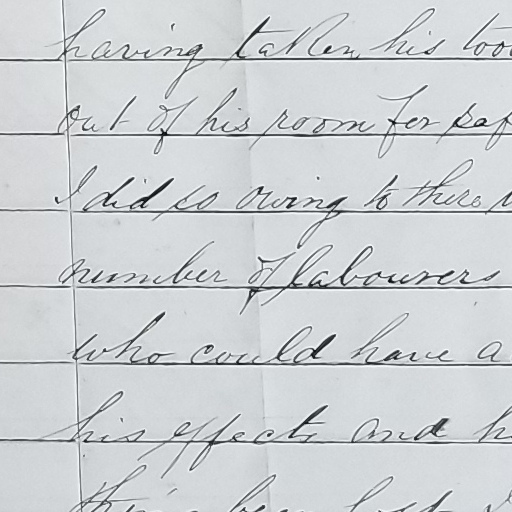 having taken his
out of his room for
I did so owing to there
number of labourers
who could have a
his effects and
been